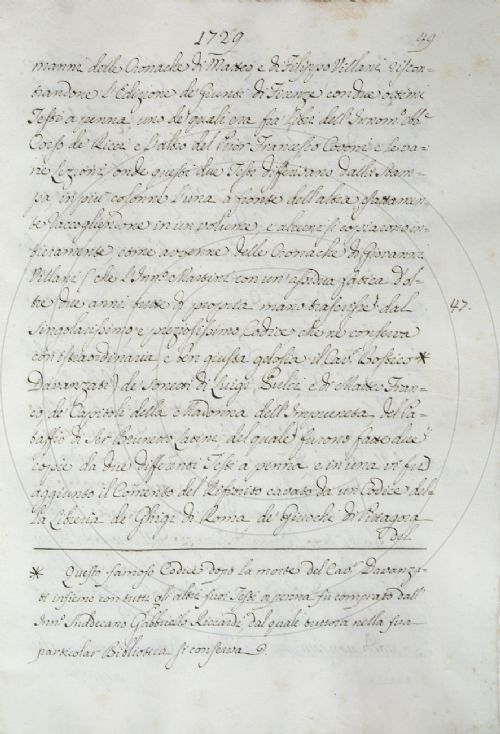 1729
49
manni delle Cronache di Matteo e di Filippo Villani riscon-
trandone l'Edizione de' Giunti di Firenze con due ottimi
Testi a penna uno de' quali era fra' libri dell' Innom.º Ab.e
Cors.º de' Ricci e l'altro del Prior Francesco Covoni e le va-
rie Lezioni onde questi due Testi differivano dalla Stam-
pa in più colonne l'una a fronte dell' altra esattamen-
te raccogliendone in un volume, e alcune si copiarono in-
tieramente come avvenne delle Cronache di Giovanni
Villani ( che l'Inn.º Martini con un' assidua fatica d'ol-
tre due anni tutte di propria mano trascrisse dal
47.
singolarissimo e preziosissimo Codice che ne conserva
con istraordinaria e ben giusta gelosia il Cav.
Davanzati ) de' Sonetti di Luigi Pulci e di Matteo Fran-
co de' Capitoli della Madonna dell' Impruneta del Pa-
taffio di Ser Brunetto Latini del quale furono fatte due
copie da due differenti Testi a penna e in una vi fu
aggiunto il Comento del Ripurito cavato da un Codice del-
la Libreria de' Ghigi di Roma de' Giuochi di Pittagora
del
* Questo famoso Codice dopo la morte del Cav. Davanza-
ti insieme con tutti gli altri suoi Testi a penna fu comprato dall'
Inn.º Suddecano Gabbriello Riccardi dal quale tuttora nella sua
particolar Biblioteca si conserva.